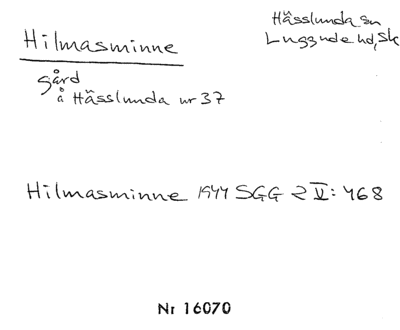 Hilmasminne
Hässlunda sn
Luggude hd, Sk
gård
å Hässlunda nr 37
Hilmasminne 1944 SGG 2 V: 468
Nr 16070